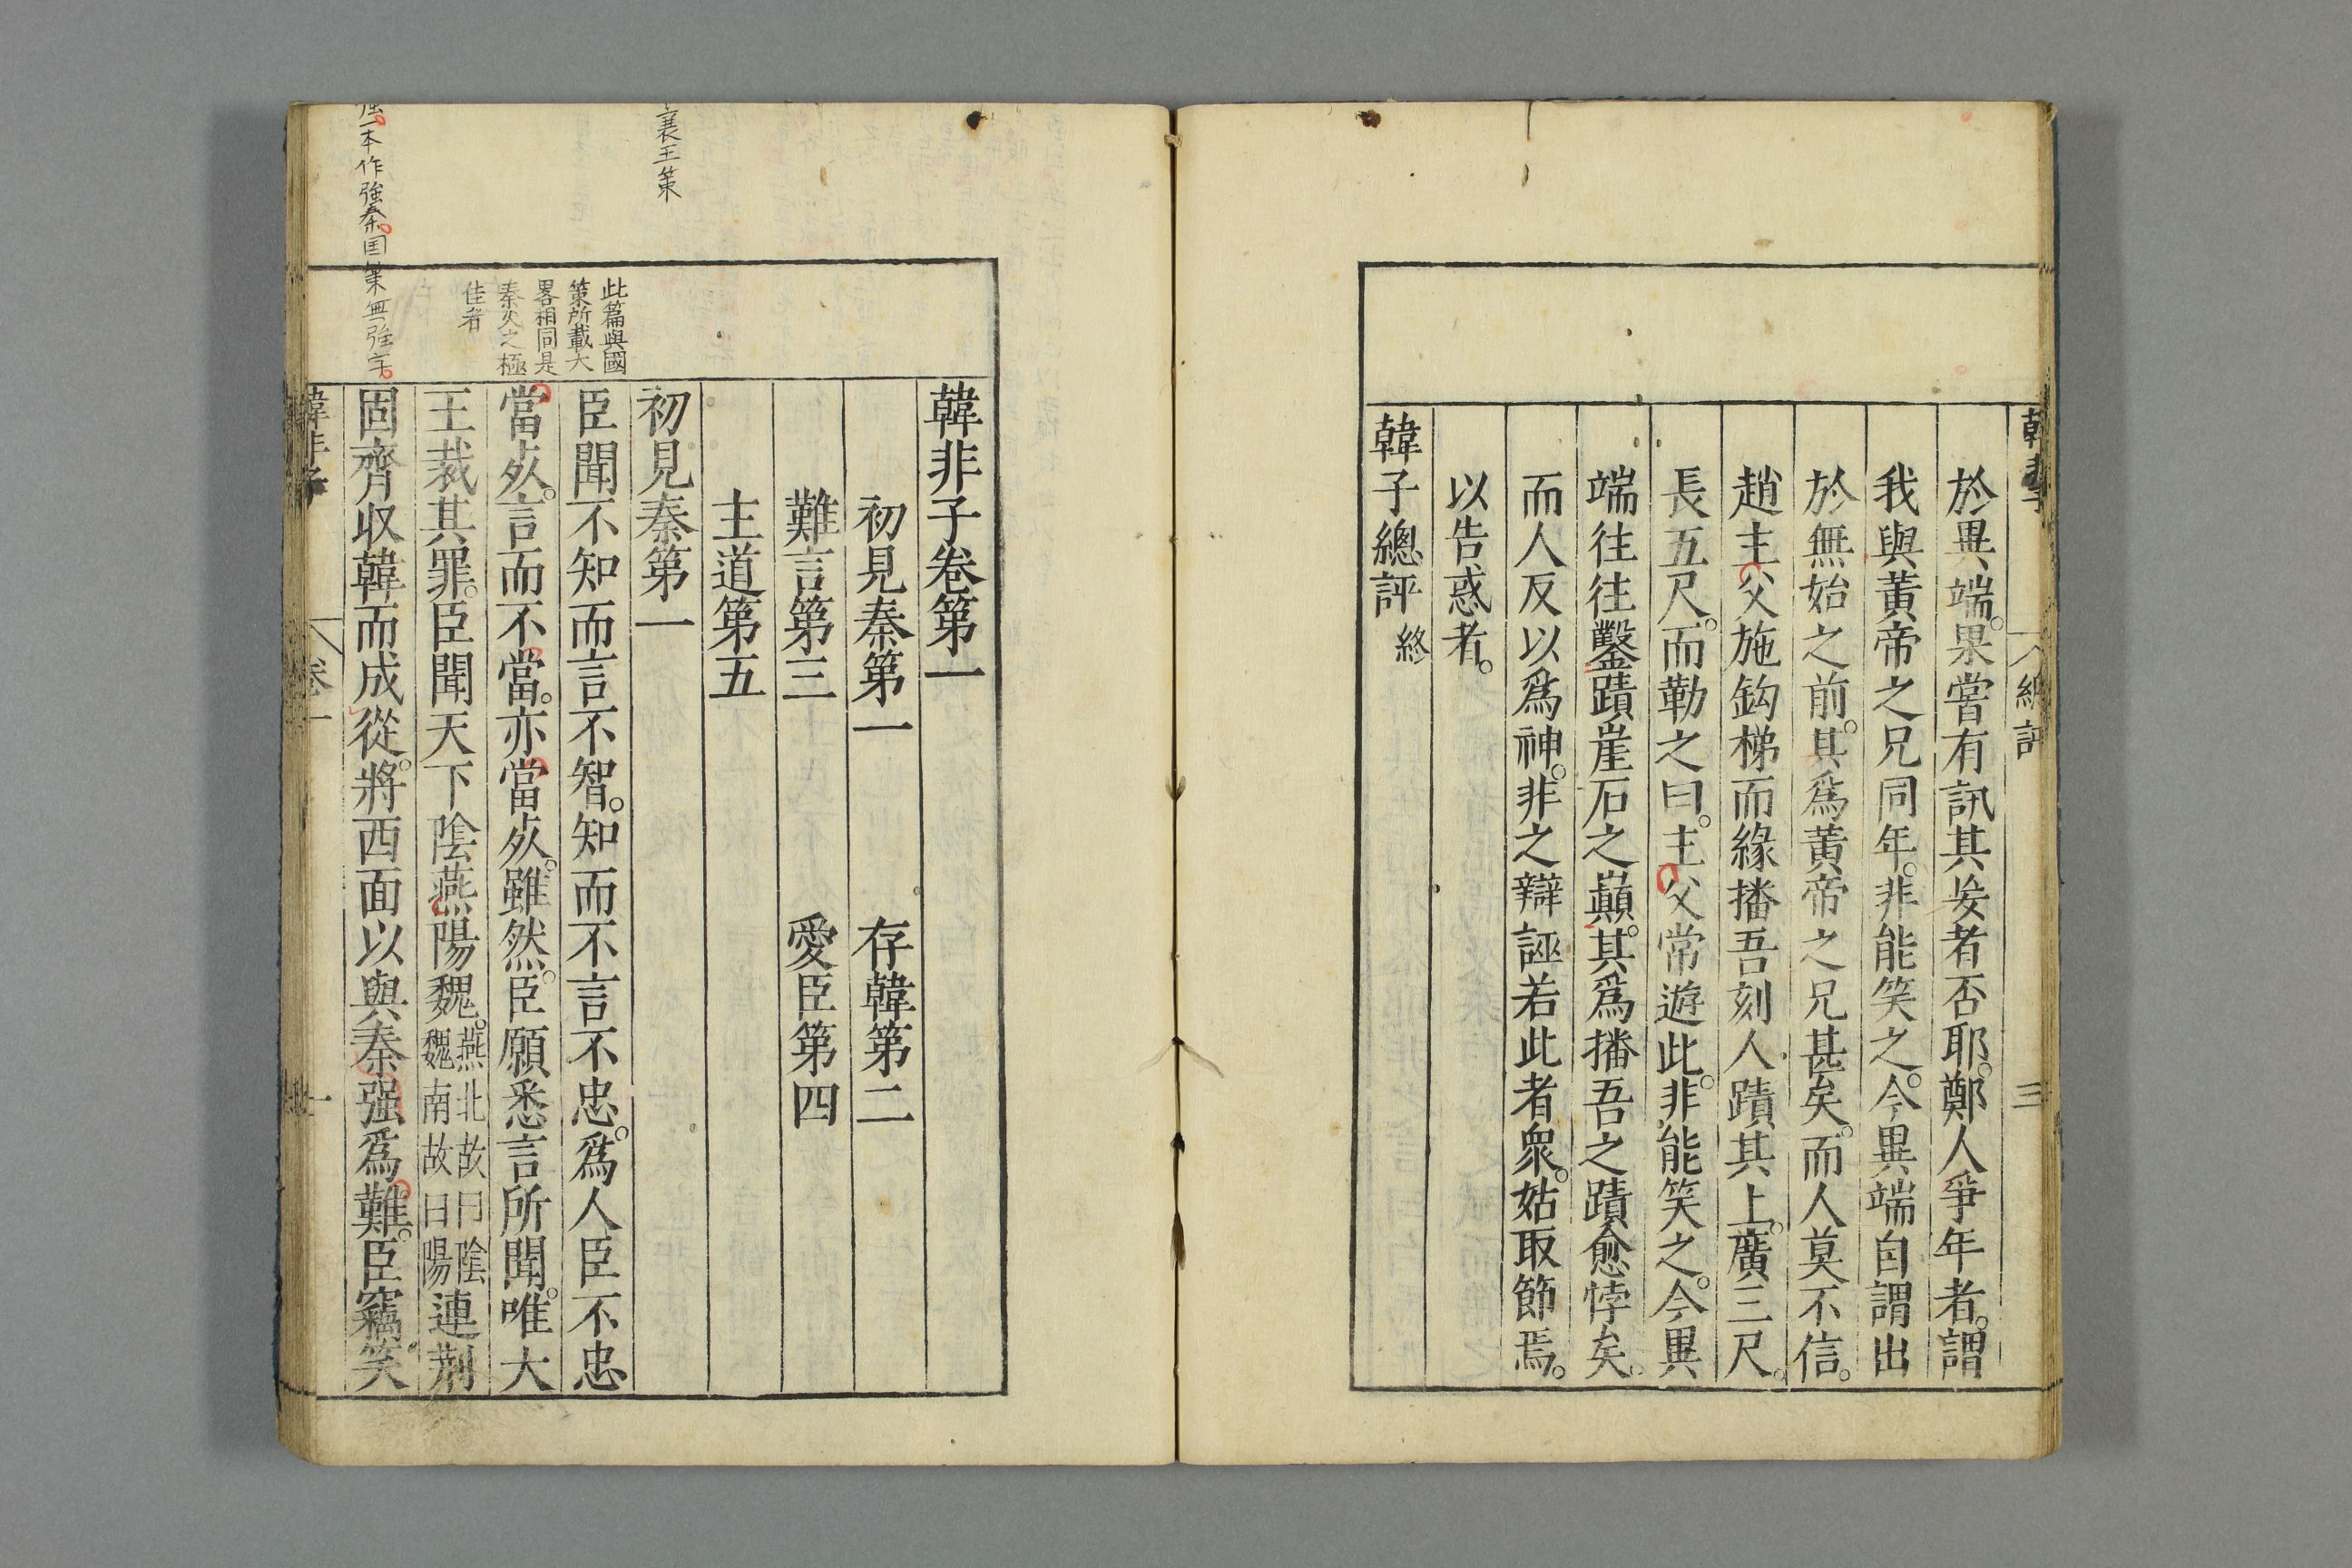 於異端。果嘗有訊其妄者否耶。鄭人爭年者。謂
我與黃帝之兄同年。非能笑之。今異端自謂出
於無始之前。其爲黃帝之兄甚矣。而人莫不信。
趙主父施鈎梯而緣播吾刻人蹟其上。廣三尺。
長五尺。而勒之曰。主父常遊此。非能笑之。今異
端往往鑿蹟崖石之巔。其爲播吾之蹟愈悖矣。
而人反以爲神。非之辯誣若此者衆。姑取節焉。
以告惑者。
韓子總評 終
韓非子卷第一
初見秦第一 存韓第二
難言第三 愛臣第四
主道第五
初見秦第一
臣聞不知而言不智。知而不言不忠。爲人臣不忠
當死。言而不當。亦當死。雖然。臣願悉言所聞。唯大
王裁其罪。臣聞天下陰燕陽魏。燕北故曰陰魏南故曰陽連荆
固齊収韓而成從。將西面以與秦强爲難。臣竊笑
此篇與國
策所載大
畧相同是
秦文之極
佳者
襄王策
一本作強秦。国策無强字。
韓非子 卷一 一
總評 三